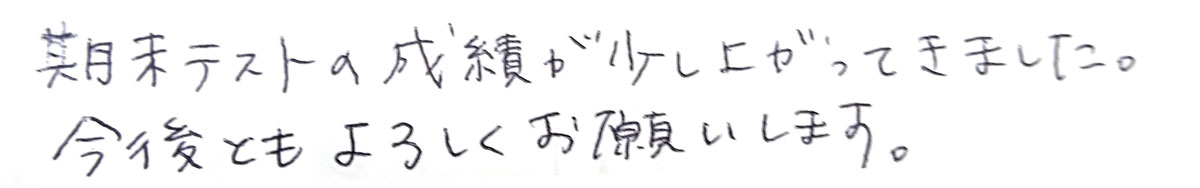 期末テストの成績が少し上がってきました。
今後ともよろしくお願いします。